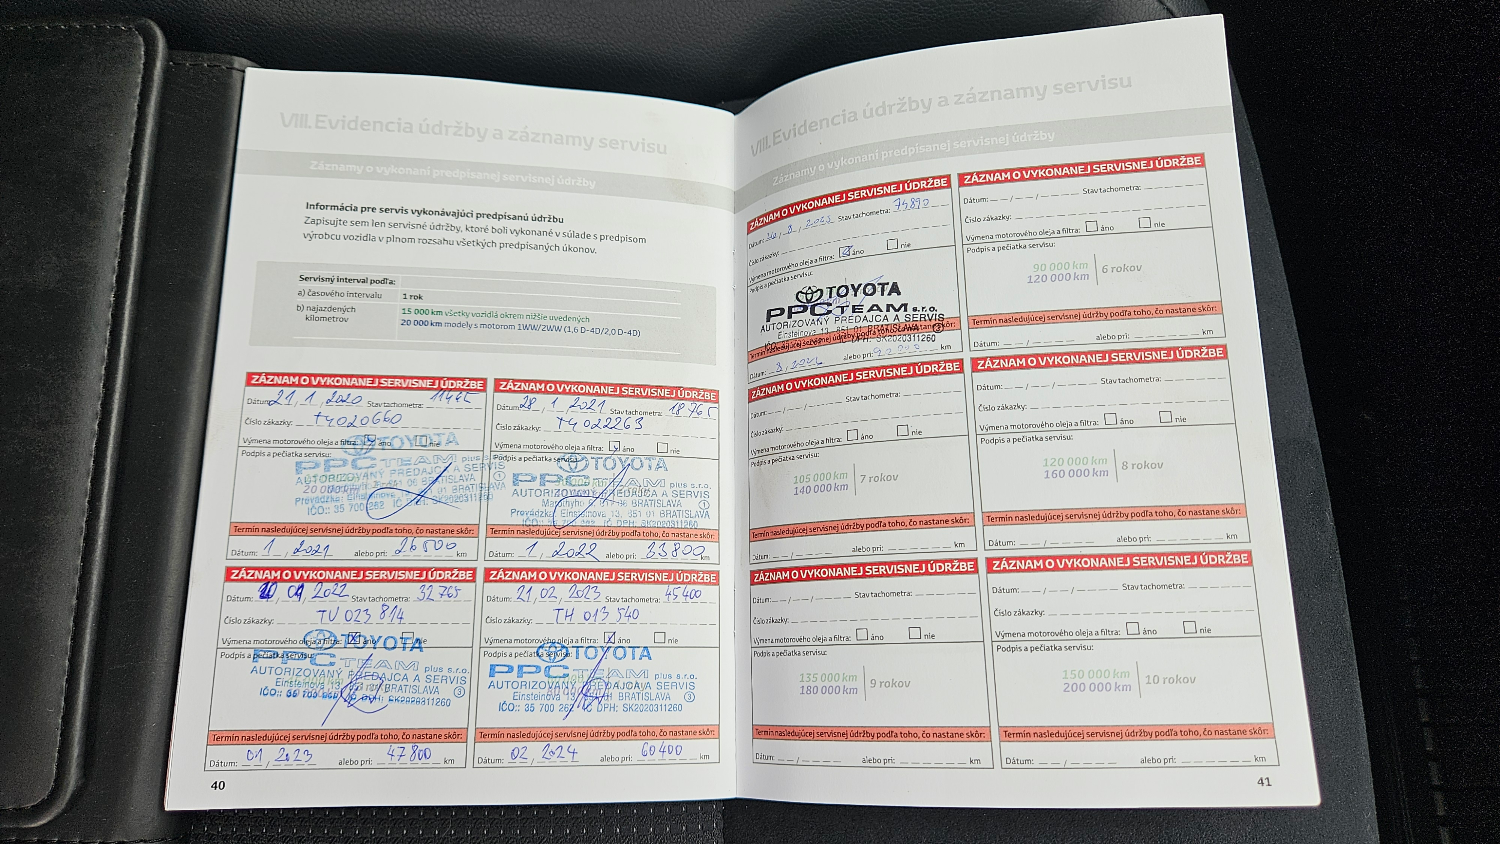 VIII. Evidencia údržby a záznamy servisu
Záznamy o vykonaní predpísanej servisnej údržby
Informácia pre servis vykonávajúci predpísanú údržbu
Zapisujte sem len servisné údržby, ktoré boli vykonané v súlade s predpisom
výrobcu vozidla v plnom rozsahu všetkých predpísaných úkonov.
Servisný interval podľa:
a) časového intervalu 1 rok
b) najazdených kilometrov
15 000 km všetky vozidlá okrem nižšie uvedených
20 000 km modely s motorom 1WW/2WW (1,6 D-4D/2,0 D-4D)
ZÁZNAM O VYKONANEJ SERVISNEJ ÚDRŽBE
Dátum: 21, 1, 2020 Stav tachometra:
Číslo zákazky: T4020660
Výmena motorového oleja a filtra: áno nie
Podpis a pečiatka servisu:
TOYOTA
PPC TEAM plus s.r.o.
AUTORIZOVANÝ PREDAJCA A SERVIS
Termín nasledujúcej servisnej údržby podľa toho, čo nastane skôr:
Dátum: 1, 2021 alebo pri: 26500 km
ZÁZNAM O VYKONANEJ SERVISNEJ ÚDRŽBE
Dátum: 28, 1, 2021 Stav tachometra: 18765
Číslo zákazky: T4022263
Výmena motorového oleja a filtra: áno nie
Podpis a pečiatka servisu:
TOYOTA
PPC TEAM plus s.r.o.
AUTORIZOVANÝ PREDAJCA A SERVIS
BRATISLAVA 1
Prevádzka: Einsteinova 13, 851 01 BRATISLAVA
DPH: SK2020311260
Termín nasledujúcej servisnej údržby podľa toho, čo nastane skôr:
Dátum: 1, 2022 alebo pri: 33800 km
ZÁZNAM O VYKONANEJ SERVISNEJ ÚDRŽBE
Dátum: 01, 2022 Stav tachometra: 32765
Číslo zákazky: TU 023 814
Výmena motorového oleja a filtra: áno nie
Podpis a pečiatka servisu:
TOYOTA
PPC TEAM plus s.r.o.
AUTORIZOVANÝ PREDAJCA A SERVIS
Einsteinova BRATISLAVA 3
IČO: 35 700 DPH: SK2020311260
Termín nasledujúcej servisnej údržby podľa toho, čo nastane skôr:
Dátum: 01, 2023 alebo pri: 47800 km
ZÁZNAM O VYKONANEJ SERVISNEJ ÚDRŽBE
Dátum: 21, 02, 2023 Stav tachometra: 45400
Číslo zákazky: TH 013 540
Výmena motorového oleja a filtra: áno nie
Podpis a pečiatka servisu:
TOYOTA
PPC TEAM plus s.r.o.
AUTORIZOVANÝ PREDAJCA A SERVIS
Einsteinova 13, BRATISLAVA 3
IČO: 35 700 262 IČ DPH: SK2020311260
Termín nasledujúcej servisnej údržby podľa toho, čo nastane skôr:
Dátum: 02, 2024 alebo pri: 60400 km
40
VIII. Evidencia údržby a záznamy servisu
Záznamy o vykonaní predpísanej servisnej údržby
ZÁZNAM O VYKONANEJ SERVISNEJ ÚDRŽBE
Dátum: Stav tachometra: 75890
Číslo zákazky:
Výmena motorového oleja a filtra: áno nie
Podpis a pečiatka servisu:
TOYOTA
PPC TEAM s.r.o.
AUTORIZOVANÝ PREDAJCA A SERVIS
Einsteinova 13, 851 01 BRATISLAVA 3
DPH: SK2020311260
Termín nasledujúcej servisnej údržby podľa toho, čo nastane skôr:
Dátum: alebo pri: km
ZÁZNAM O VYKONANEJ SERVISNEJ ÚDRŽBE
Dátum: Stav tachometra:
Číslo zákazky:
Výmena motorového oleja a filtra: áno nie
Podpis a pečiatka servisu:
90 000 km
120 000 km
6 rokov
Termín nasledujúcej servisnej údržby podľa toho, čo nastane skôr:
Dátum: alebo pri: km
ZÁZNAM O VYKONANEJ SERVISNEJ ÚDRŽBE
Dátum: Stav tachometra:
Číslo zákazky:
Výmena motorového oleja a filtra: áno nie
Podpis a pečiatka servisu:
105 000 km
140 000 km
7 rokov
Termín nasledujúcej servisnej údržby podľa toho, čo nastane skôr:
Dátum: alebo pri: km
ZÁZNAM O VYKONANEJ SERVISNEJ ÚDRŽBE
Dátum: Stav tachometra:
Číslo zákazky:
Výmena motorového oleja a filtra: áno nie
Podpis a pečiatka servisu:
120 000 km
160 000 km
8 rokov
Termín nasledujúcej servisnej údržby podľa toho, čo nastane skôr:
Dátum: alebo pri: km
ZÁZNAM O VYKONANEJ SERVISNEJ ÚDRŽBE
Dátum: Stav tachometra:
Číslo zákazky:
Výmena motorového oleja a filtra: áno nie
Podpis a pečiatka servisu:
135 000 km
180 000 km
9 rokov
Termín nasledujúcej servisnej údržby podľa toho, čo nastane skôr:
Dátum: alebo pri: km
ZÁZNAM O VYKONANEJ SERVISNEJ ÚDRŽBE
Dátum: Stav tachometra:
Číslo zákazky:
Výmena motorového oleja a filtra: áno nie
Podpis a pečiatka servisu:
150 000 km
200 000 km
10 rokov
Termín nasledujúcej servisnej údržby podľa toho, čo nastane skôr:
Dátum: alebo pri: km
41